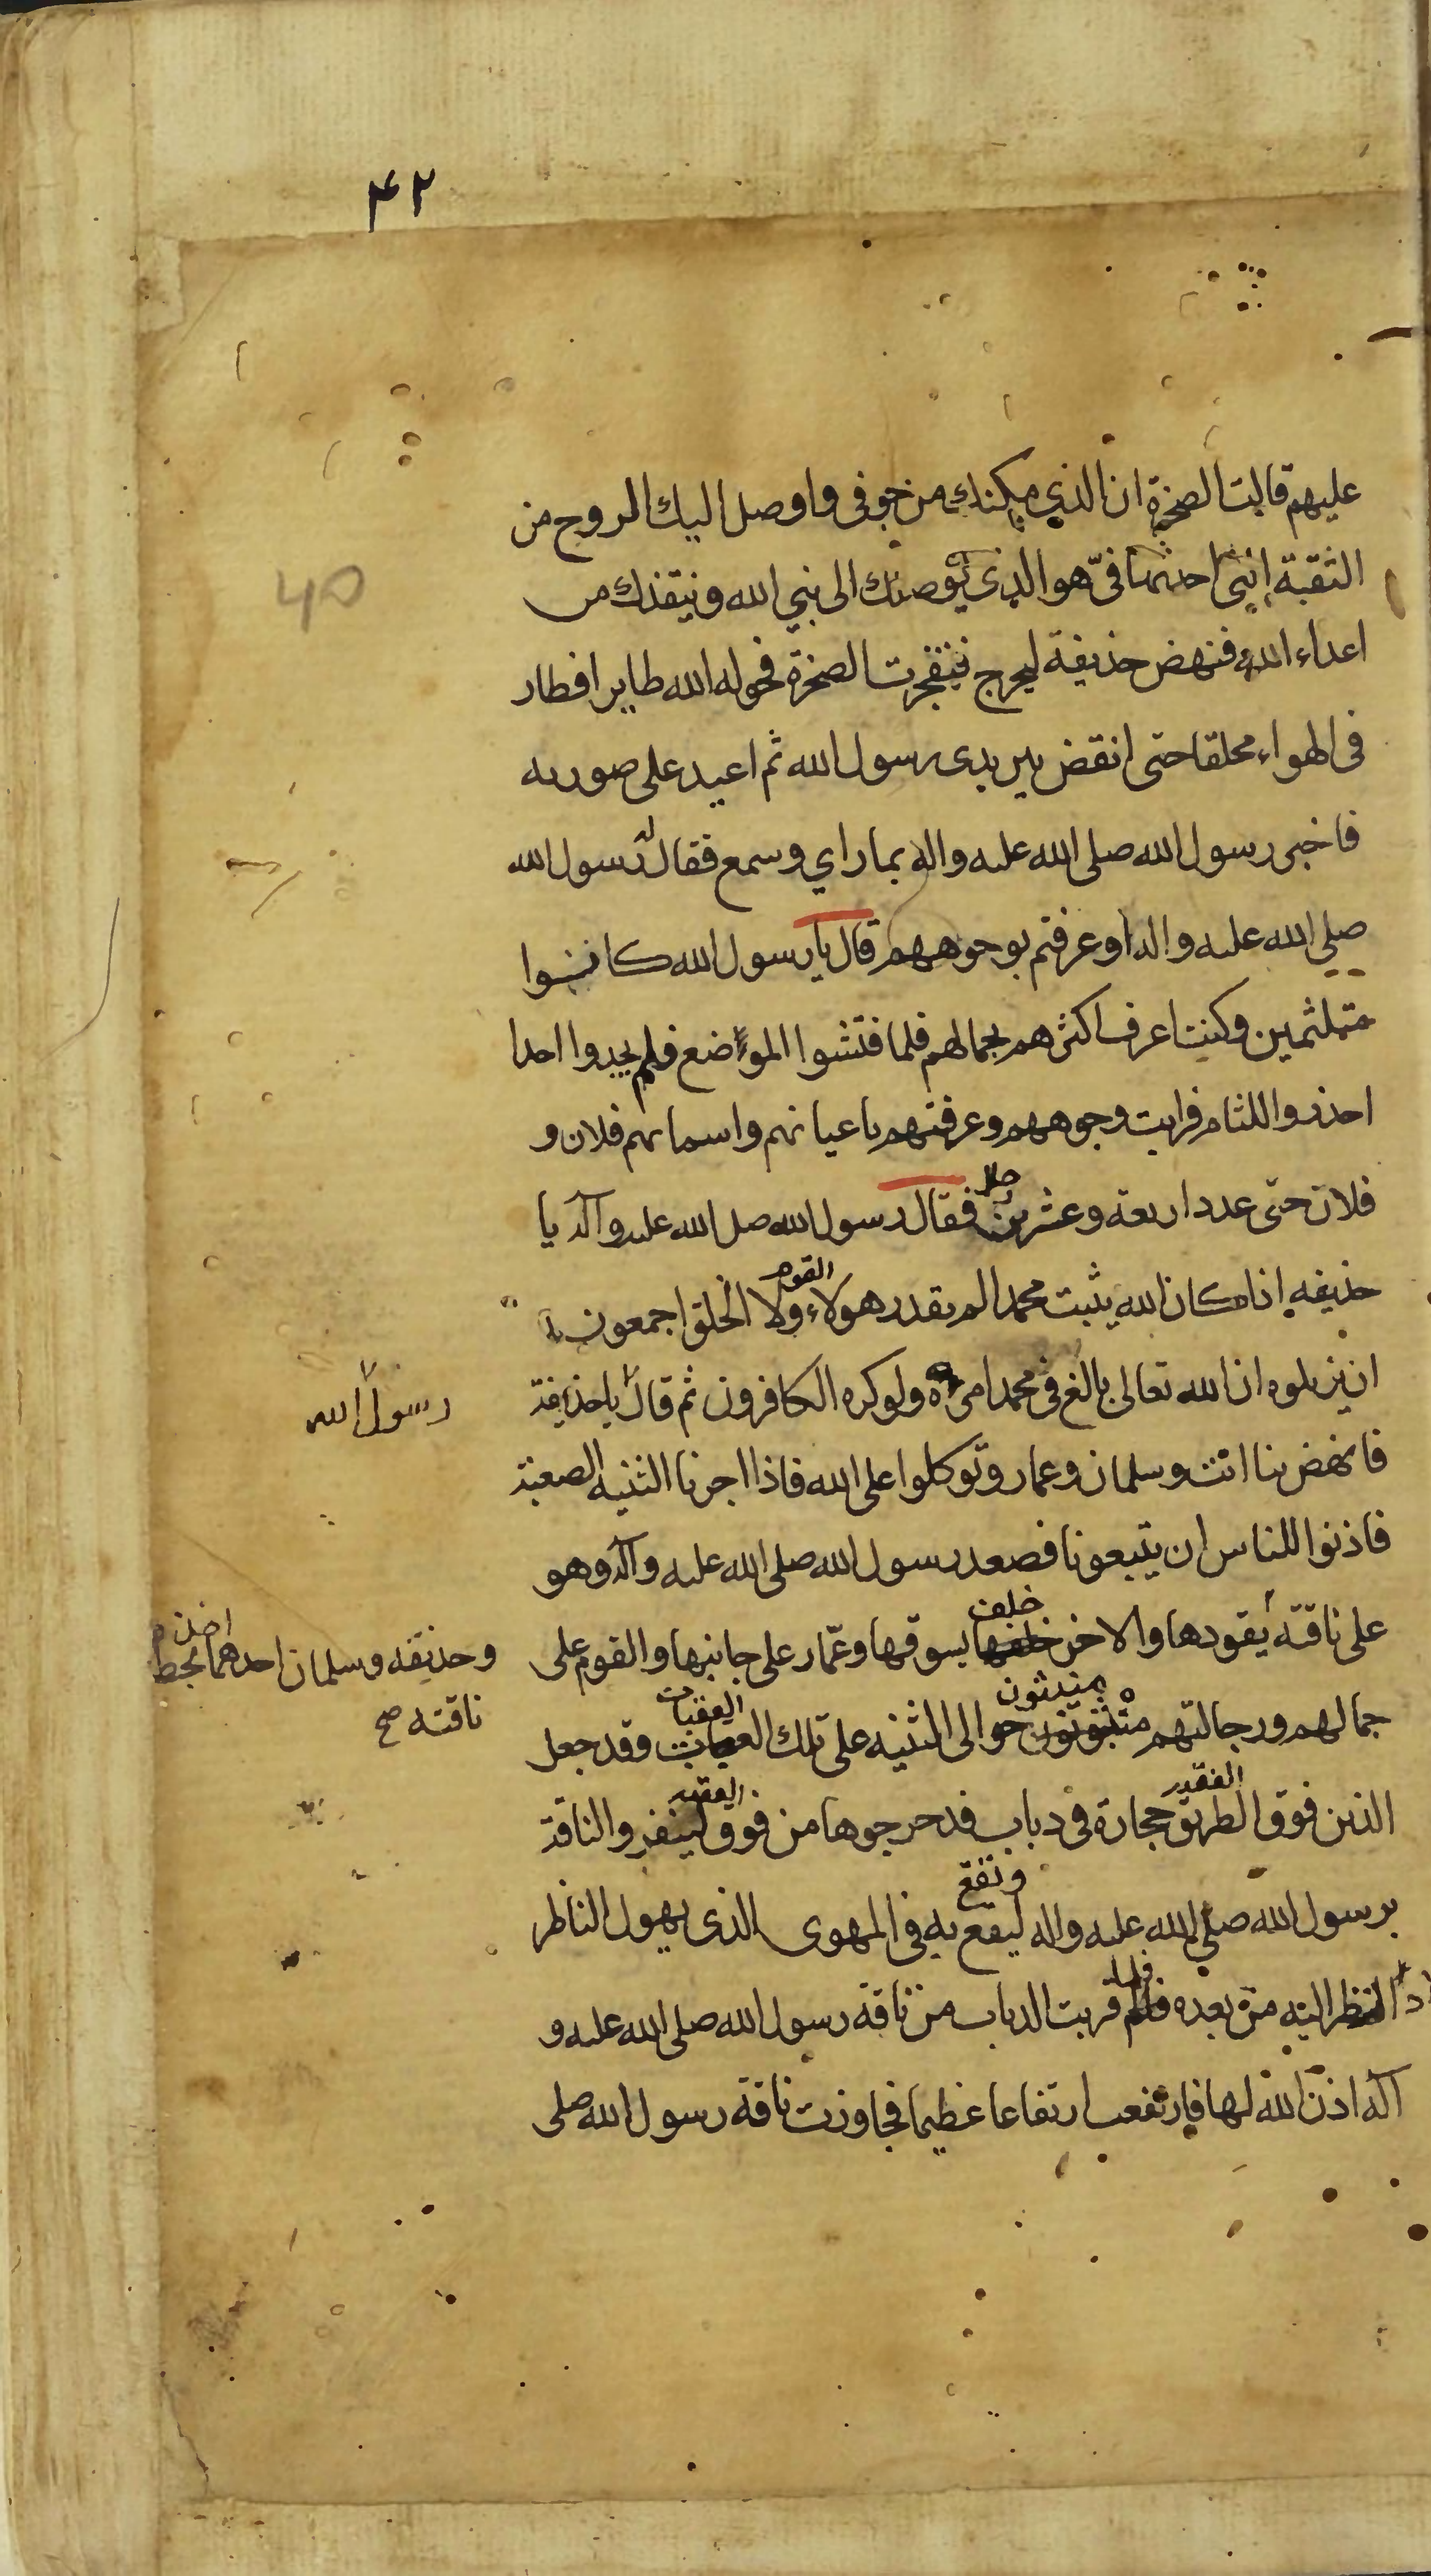 ۴۲
عليهم قالت الصخرة ان الذي يمكنك من جوفى واوصل اليك الروح من
الثقبة التى احدثها فىّ هو الذى يوصلك الى نبي الله وينقذك من
اعداء الله فنهض حذيفة ليخرج فتفجرت الصخرة فحوله الله طايرا فطار
فى الهواء محلقا حتى انقض بين يدى رسول الله ثم اعيد على صورته
فاخبر رسول الله صلى الله عليه واله بما راي وسمع فقال له رسول الله
صلي الله عليه واله او عرفتم بوجوههم قال يا رسول الله كانوا
متلثمين وكنت اعرف اكثرهم بجمالهم فلما فتشوا المواضع فلم يجدوا احدا
احذروا اللثام فرايت وجوههم وعرفتهم باعيانهم واسمائهم فلان و
فلان حتى عدد اربعة وعشرين رجلا فقال رسول الله صلى الله عليه وآله يا
حذيفه اذا كان الله يثبت محمدا لم يقدر هولاء القوم ولا الخلق اجمعون
ان يزيلوه ان الله تعالى بالغ فى محمد امره ولو كره الكافرون ثم قال يا حذيفة
رسول الله
فانهض بنا انت وسلمان وعمار وتوكلوا على الله فاذا اجزنا الثنيه الصعبة
فاذنوا للناس ان يتبعونا فصعد رسول الله صلى الله عليه وآله وهو
على ناقته يقودها والاخر خلفها خلف يسوقها وعمّار على جانبها والقوم على
وحذيفه وسلمان احدهما بخطام
ناقته صح
جمالهم ورجالتهم منبثون حوالى الثنيه على تلك العقبات وقد جعل
الذين فوق الطريق حجارة فى دباب فدحرجوها من فوق لينفروا الناقة
برسول الله صلي الله عليه واله ليقع وتقع به فى المهوى الذى يهول الناظر
اذا نظر اليه من بعده فلما قربت الدباب من ناقة رسول الله صلى الله عليه و
آله اذن الله لها فارتفعت ارتفاعا عظيما فجاوزت ناقة رسول الله صلى